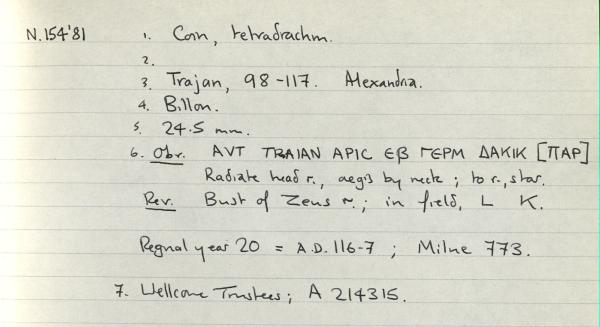 N.154'81 1. Coin, tetradrachm.
2.
3. Trajan, 98-117. Alexandria.
4. Billon.
5. 24.5 mm.
6. Obv. ΑVΤ ΤRΑΙΑΝ ΑΡΙC ЄΒ ΓΕΡΜ ΔΑΚΙΚ [ΠΑΡ]
Radiate head r., aegis by neck; to r., star.
Rev. Bust of Zeus r.; in field, L K.
Regnal year 20 = A.D. 116-7; Milne 773.
7. Wellcome Trustees; A 214315.